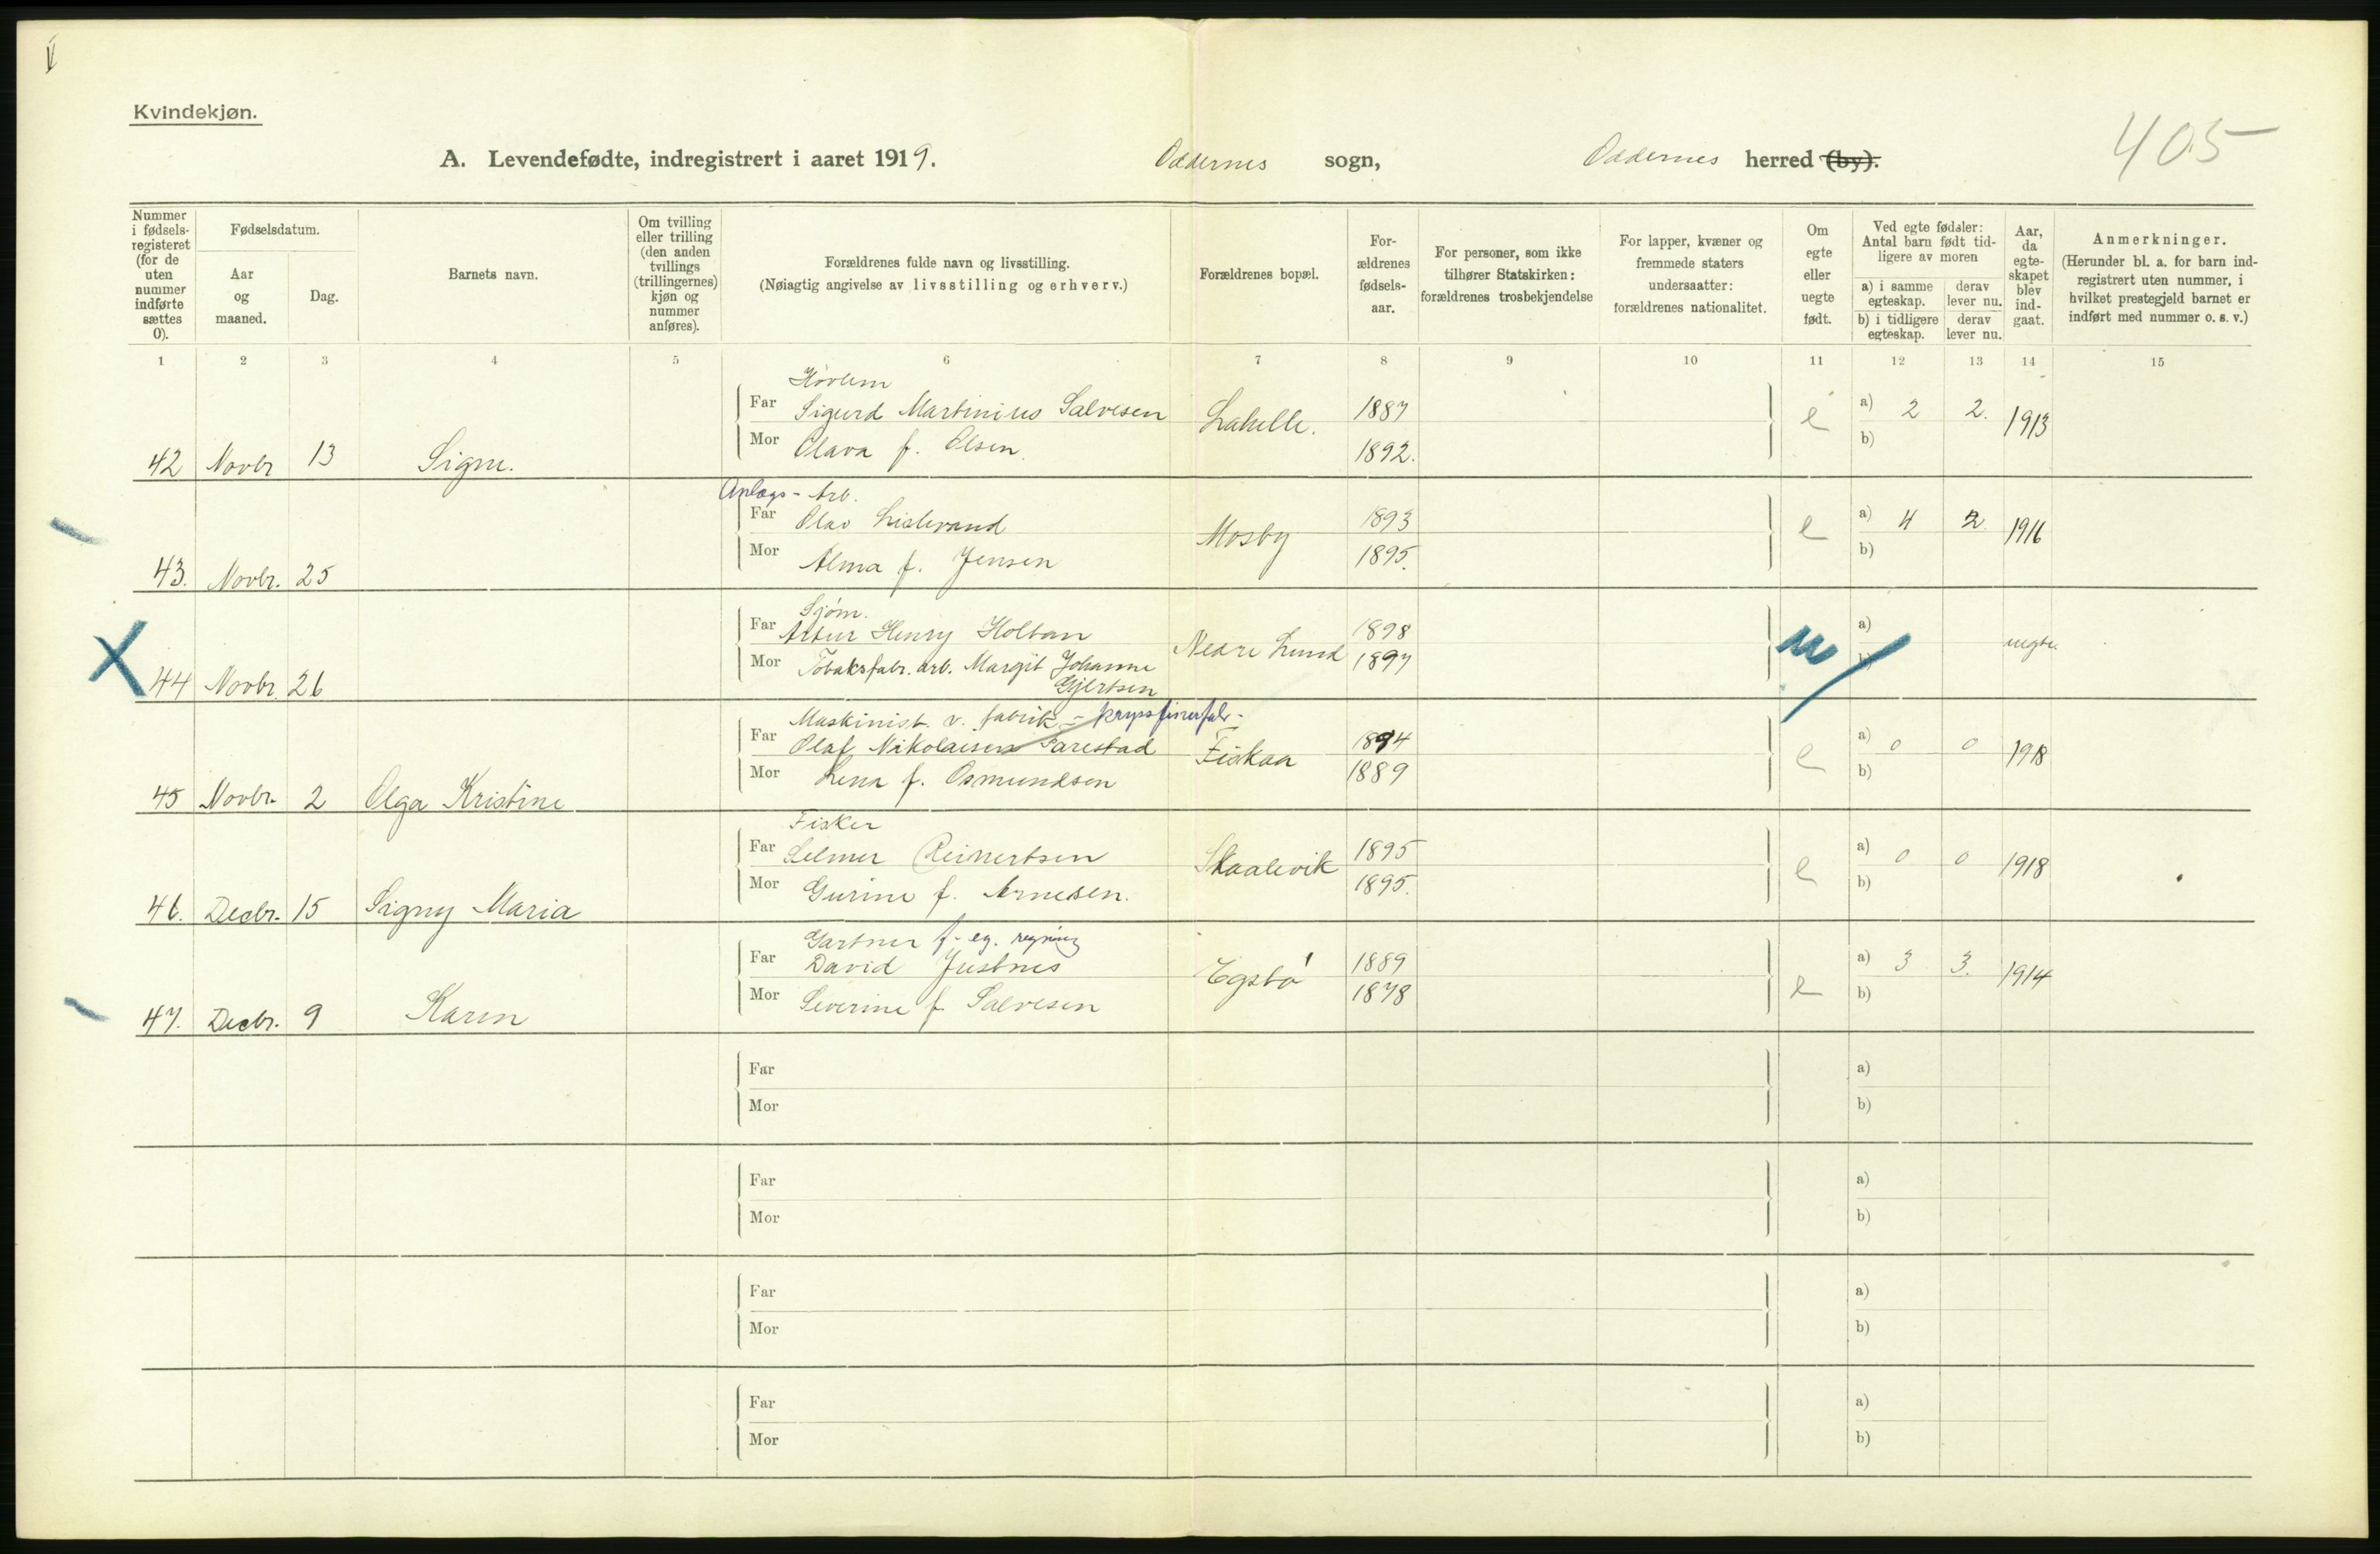 Kvindekjøn.
405
A. Levendefødte, indregistrert i aaret 1919. Oddernes sogn, Oddernes herred (by).
Nummer i fødselsregisteret (for de uten nummer indførte sættes 0).
Fødselsdatum.
Aar og maaned.
Dag.
Barnets navn.
Om tvilling eller trilling (den anden tvillings (trillingernes) kjøn og nummer anføres).
Forældrenes fulde navn og livsstilling.
(Nøiagtig angivelse av livsstilling og erhverv.)
Forældrenes bopæl.
Forældrenes fødselsaar.
For personer, som ikke tilhører Statskirken: forældrenes trosbekjendelse
For lapper, kvæner og fremmede staters undersaatter: forældrenes nationalitet.
Om egte eller uegte født.
Ved egte fødsler: Antal barn født tidligere av moren
a) i samme egteskap.
derav lever nu.
b) i tidligere egteskap.
derav lever nu.
Aar, da egteskapet blev indgaat.
Anmerkninger.
(Herunder bl. a. for barn indregistrert uten nummer, i hvilket prestegjeld barnet er indført med nummer o. s. v.)
1 2 3 4 5 6 7 8 9 10 11 12 13 14 15
Far Sigurd Martinius Salvesen 1887 a) 2 2.
Mor Olava f. Olsen. Lahelle. 1892. e b) 1913
42 Novbr 13 Signe.
Anlægs- Arb.
Far Olav 1893 a) 4 2
Mor Alma f. Jensen Mosby 1895. e b) 1916
43. Novbr. 25
Sjøm.
Far Artur Henry Holtan 1898 a)
Mor Tobaksfabr. arb. Margit Johanne Gjertsen Nedre Lund 1897 u b) uegte.
44 Novbr. 26
Maskinist v. fabrik - kryssfinerfabr.
Far Olaf Nikolaisen Farestad 1894 a) 0 0
Mor Lena f. Osmundsen Fiskaa 1889 e b) 1918
45 Novbr. 2 Olga Kristine
Fisker
Far Selmer Reinertsen 1895 a) 0 0
Mor Gurine f. Arnesen. Skaalevik 1895. e b) 1918
46. Decbr. 15 Signy Maria
Gartner f. eg. regning
Far David Justnes 1889 a) 3 3.
Mor Severine f. Salvesen Egsbø 1878 e b) 1914
47. Decbr. 9 Karen
Far a)
Mor b)
Far a)
Mor b)
Far a)
Mor b)
Far a)
Mor b)